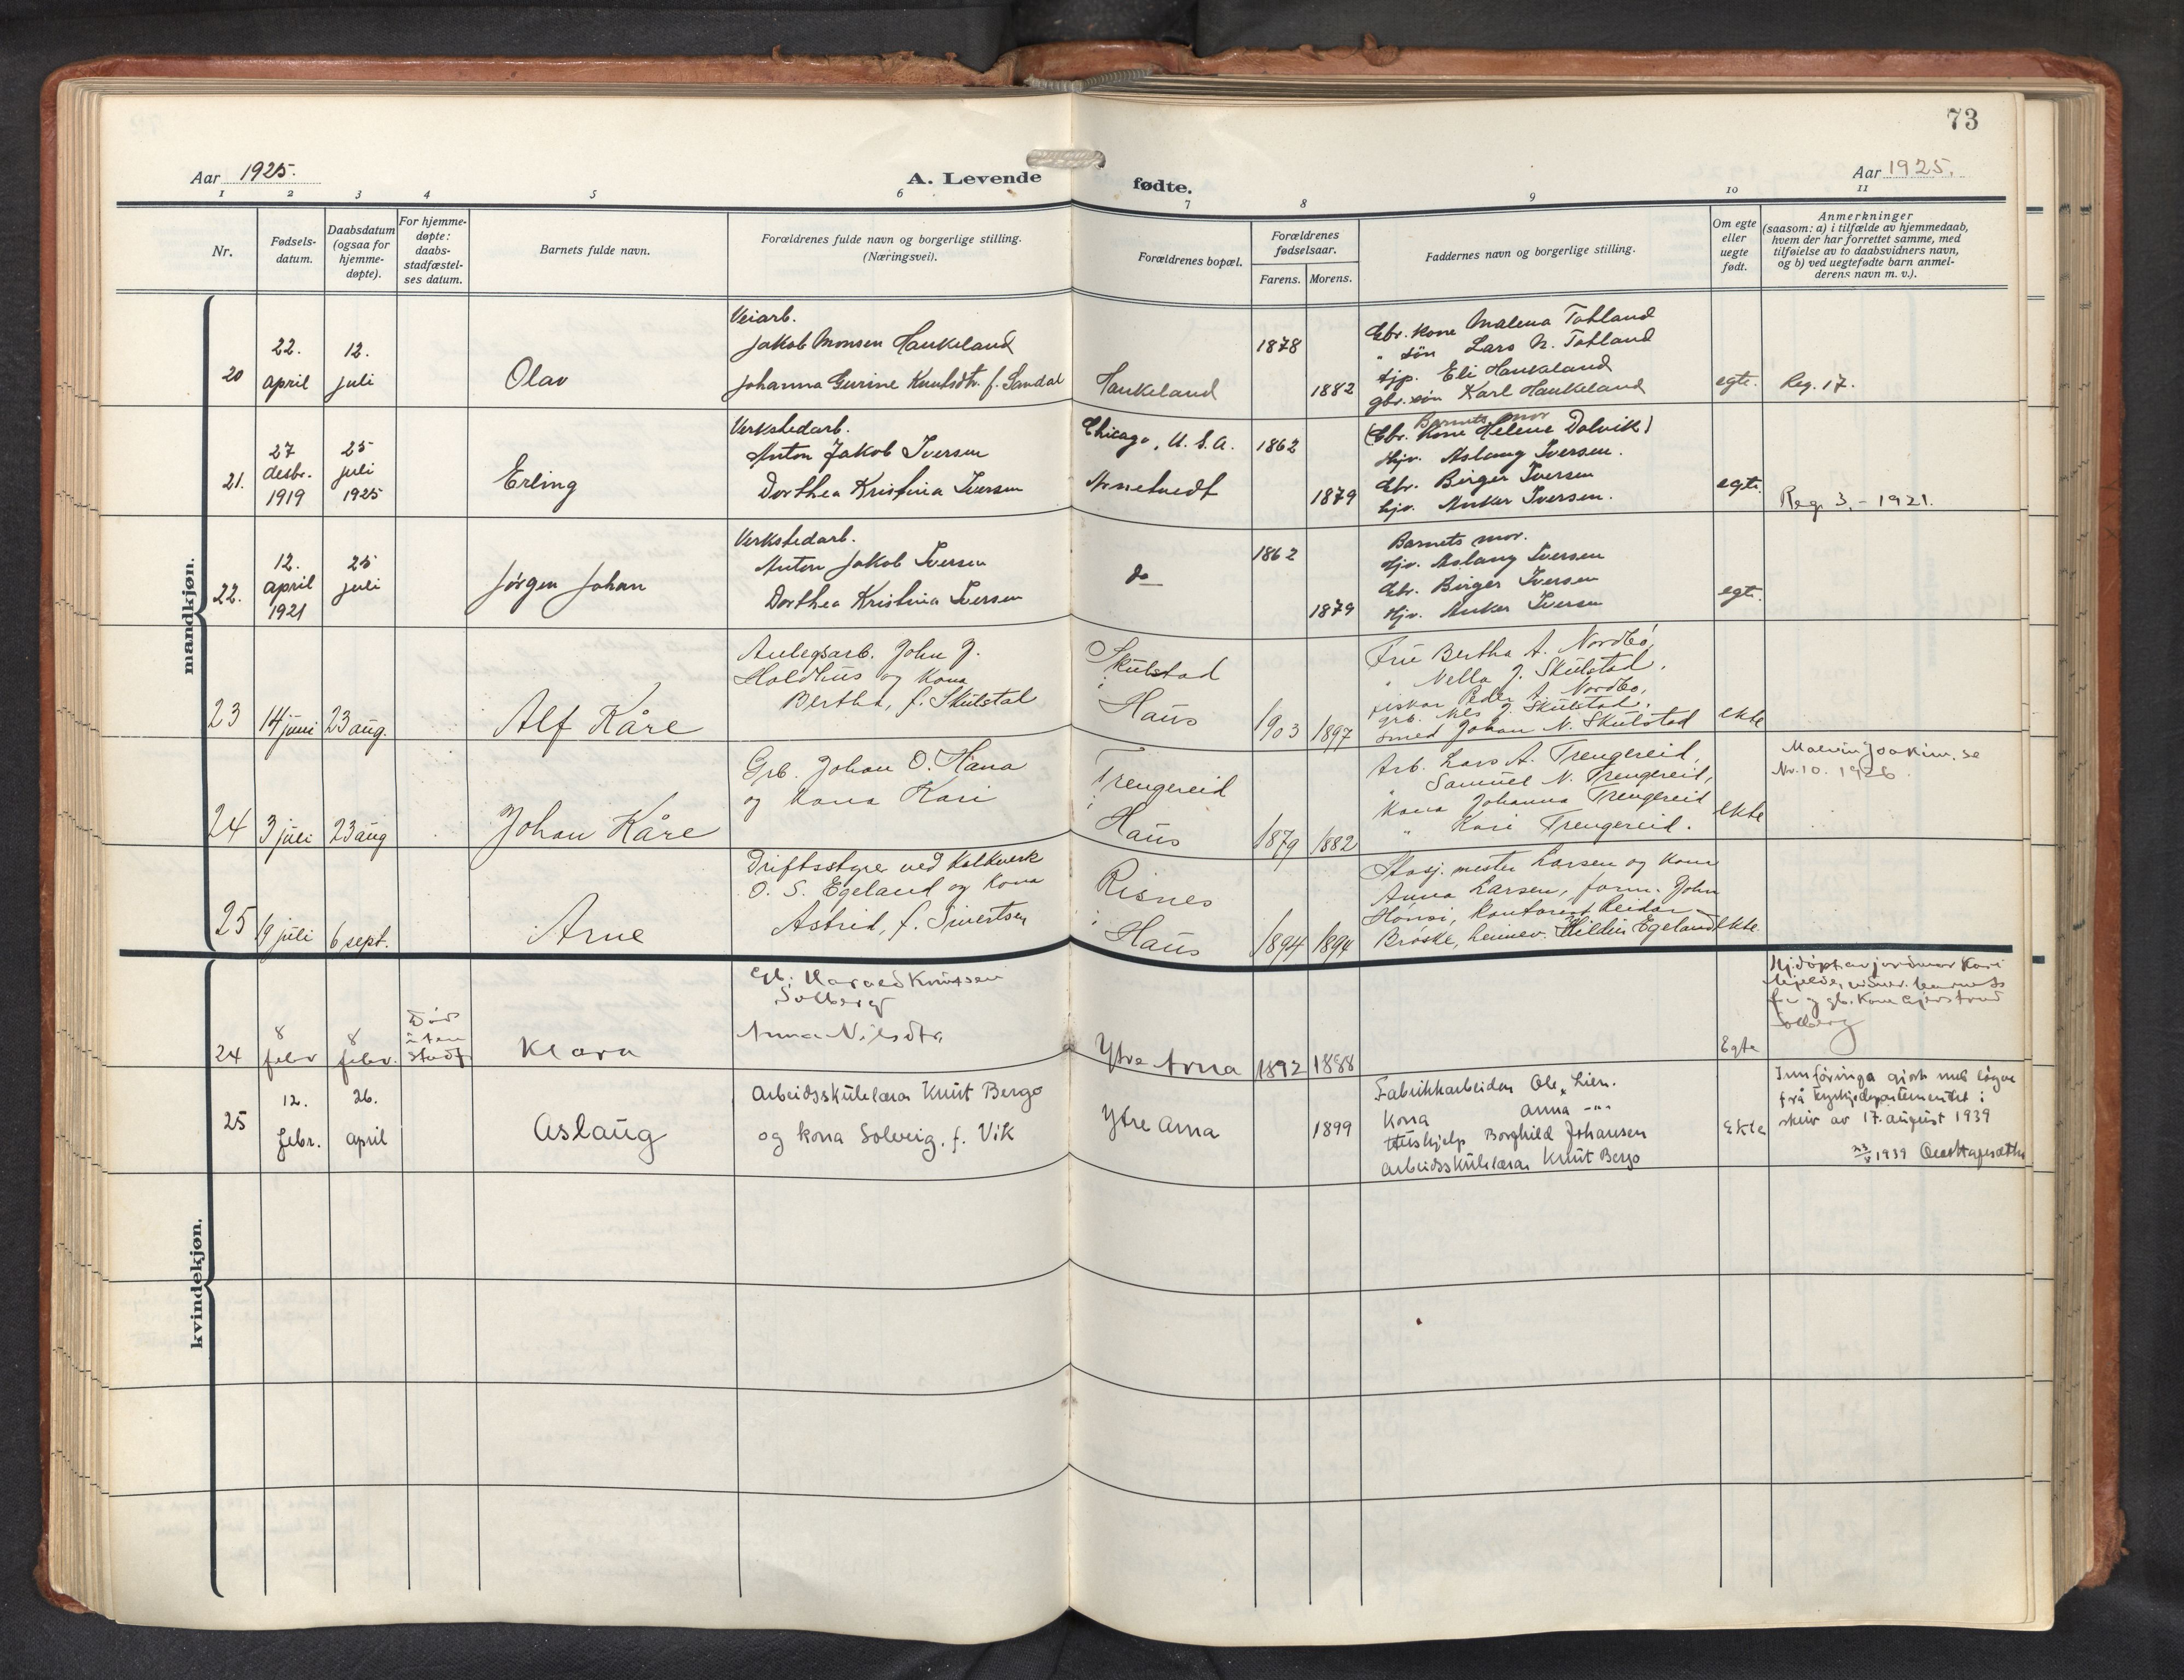 73
Aar 1925.
A. Levende
fødte.
Aar 1925.
1 2 3 4 5 6 7 8 9 10 11
Nr.
Fødsels-
datum.
Daabsdatum
(ogsaa for
hjemme-
døpte).
For hjemme-
døpte:
daabs-
stadfæstel-
ses datum.
Barnets fulde navn.
Forældrenes fulde navn og borgerlige stilling.
(Næringsvei).
Forældrenes bopæl.
Forældrenes
fødselsaar.
Farens. Morens.
Faddernes navn og borgerlige stilling.
Om egte
eller
uegte
født.
Anmerkninger
(saasom: a) i tilfælde av hjemmedaab,
hvem der har forrettet samme, med
tilføielse av to daabsvidners navn,
og b) ved uegtefødte barn anmel-
derens navn m. v.).
mandkjøn.
20
22.
april
12.
juli
Olav
Veiarb.
Jakob Monsen Haukeland
Johanna Gurine Knutsdtr. f. Sandal
Haukeland
1878
1882
Gbr. kone Malena Totland
" søn Lars N. Totland
tjp. Eli Haukeland
gbr. søn Karl Haukeland
egte.
Reg. 17.
21.
27
desbr.
1919
25
juli
1925
Erling
Verkstedarb.
Anton Jakob Iversen
Dorthea Kristina Iversen
Chicago, U. S. A.
Arnetvedt
1862
1879
Barnets mor
(Gbr. kone Helene Dalvik)
Hjv. Aslaug Iversen.
Gbr. Birger Iversen
hjv. Anker Iversen.
egte.
Reg. 3. - 1921.
22.
12.
april
1921
25
juli
Jørgen Johan
Verkstedarb.
Anton Jakob Iversen
Dorthea Kristina Iversen
do
1862
1879
Barnets mor.
Hjv. Aslaug Iversen
Gbr. Birger Iversen
Hjv. Anker Iversen
egte.
23
14 juni
23 aug.
Alf Kåre
Anlegsarb. John J.
Holdhus og kona
Bertha, f. Skulstad
Skulstad
i
Haus
1903
1897
Frü Bertha A. Nordbö,
" Nella J. Skulstad,
fiskar Peder A. Nordbo,
grb. Nils J. Skulstad,
smed Johan N. Skulstad
ekte
24
3 juli
23 aug
Johan Kåre
Grb. Johan O. Hana
og kona Kari
Trengereid
i
Haus
1879
1882
Arb. Lars A. Trengereid,
" Samuel N. Trengereid,
kona Johanna Trengereid
" Kari Trengereid.
ekte
Malvin Joakim. se
Nr. 10. 1926.
25
9 juli
6 sept.
Arne
Driftsstyrer ved Kalkverk
O. S. Egeland og kona
Astrid, f. Sivertsen
Risnes
i
Haus
1894
1894
Stasj. mester Larsen og kona
Anna Larsen, form. John
Hönsi, Kontorist Reidar
Brøske, heimev. Hildur Egeland
ekte
kvindekjøn.
24
8
febr
8
febr.
Död
uten
stadf
Klara
Gb. Harald Knutsen
Solberg
Anna Nilsdtr.
Ytre Arna
1892
1888
Egte
Hjdöpt av jordmor Kari
far og gb. Kone
Solberg
25
12.
febr.
26.
april
Aslaug
Arbeidsskulelærar Knut Bergo
og kona Solveig, f. Vik
Ytre Arna
1899
Fabrikkarbeidar Ole Lien.
Kona Anna -"-
Hushjelp Borghild Johansen
Arbeidsskulelærar Knut Bergo
Ekte
Innföringa gjort med lögve
frå kyrkjedepartementet i
skriv av 17. august 1939
1939